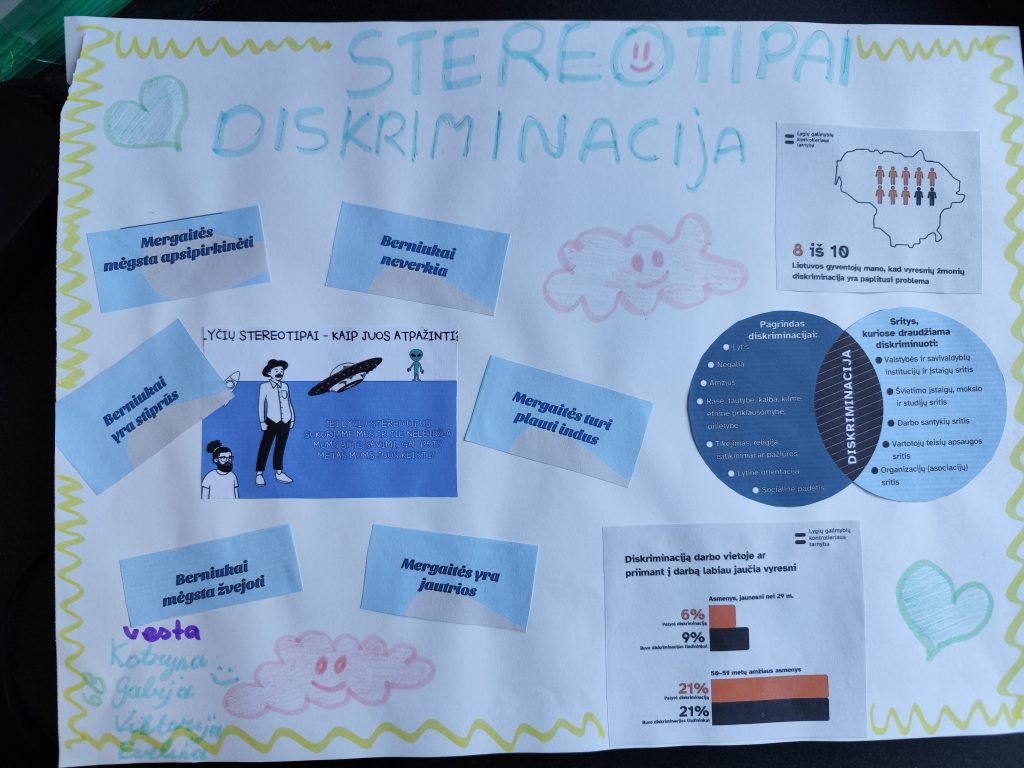 STEREOTIPAI
DISKRIMINACIJA
Lygių galimybių
kontrolieriaus
tarnyba
8 iš 10
Lietuvos gyventojų mano, kad vyresnių žmonių
diskriminacija yra paplitusi problema
Mergaitės
mėgsta apsipirkinėti
Berniukai
neverkia
Berniukai
yra stiprūs
LYČIŲ STEREOTIPAI - KAIP JUOS ATPAŽINTI?
Mergaitės turi
plauti indus
Pagrindas
diskriminacijai:
Lytis
Negalia
Amžius
Rasė, tautybė, kalba, kilmė,
etninė priklausomybė,
pilietybė
Tikėjimas, religija,
įsitikinimai ar pažiūros
Lytinė orientacija
Socialinė padėtis
DISKRIMINACIJA
Sritys,
kuriose draudžiama
diskriminuoti:
Valstybės ir savivaldybių
institucijų ir įstaigų sritis
Švietimo įstaigų, mokslo
ir studijų sritis
Darbo santykių sritis
Vartotojų teisių apsaugos
sritis
Organizacijų (asociacijų)
sritis
Berniukai
mėgsta žvejoti
Mergaitės yra
jautrios
Lygių galimybių
kontrolieriaus
tarnyba
Diskriminaciją darbo vietoje ar
priimant į darbą labiau jaučia vyresni
Asmenys, jaunesni nei 29 m.
6%
Patyrė diskriminaciją
9%
Buvo diskriminacijos liudininkai
50–59 metų amžiaus asmenys
21%
Patyrė diskriminaciją
21%
Buvo diskriminacijos liudininkai
vesta
Kotryna
Gabija
Viktorija
Evelina
6B